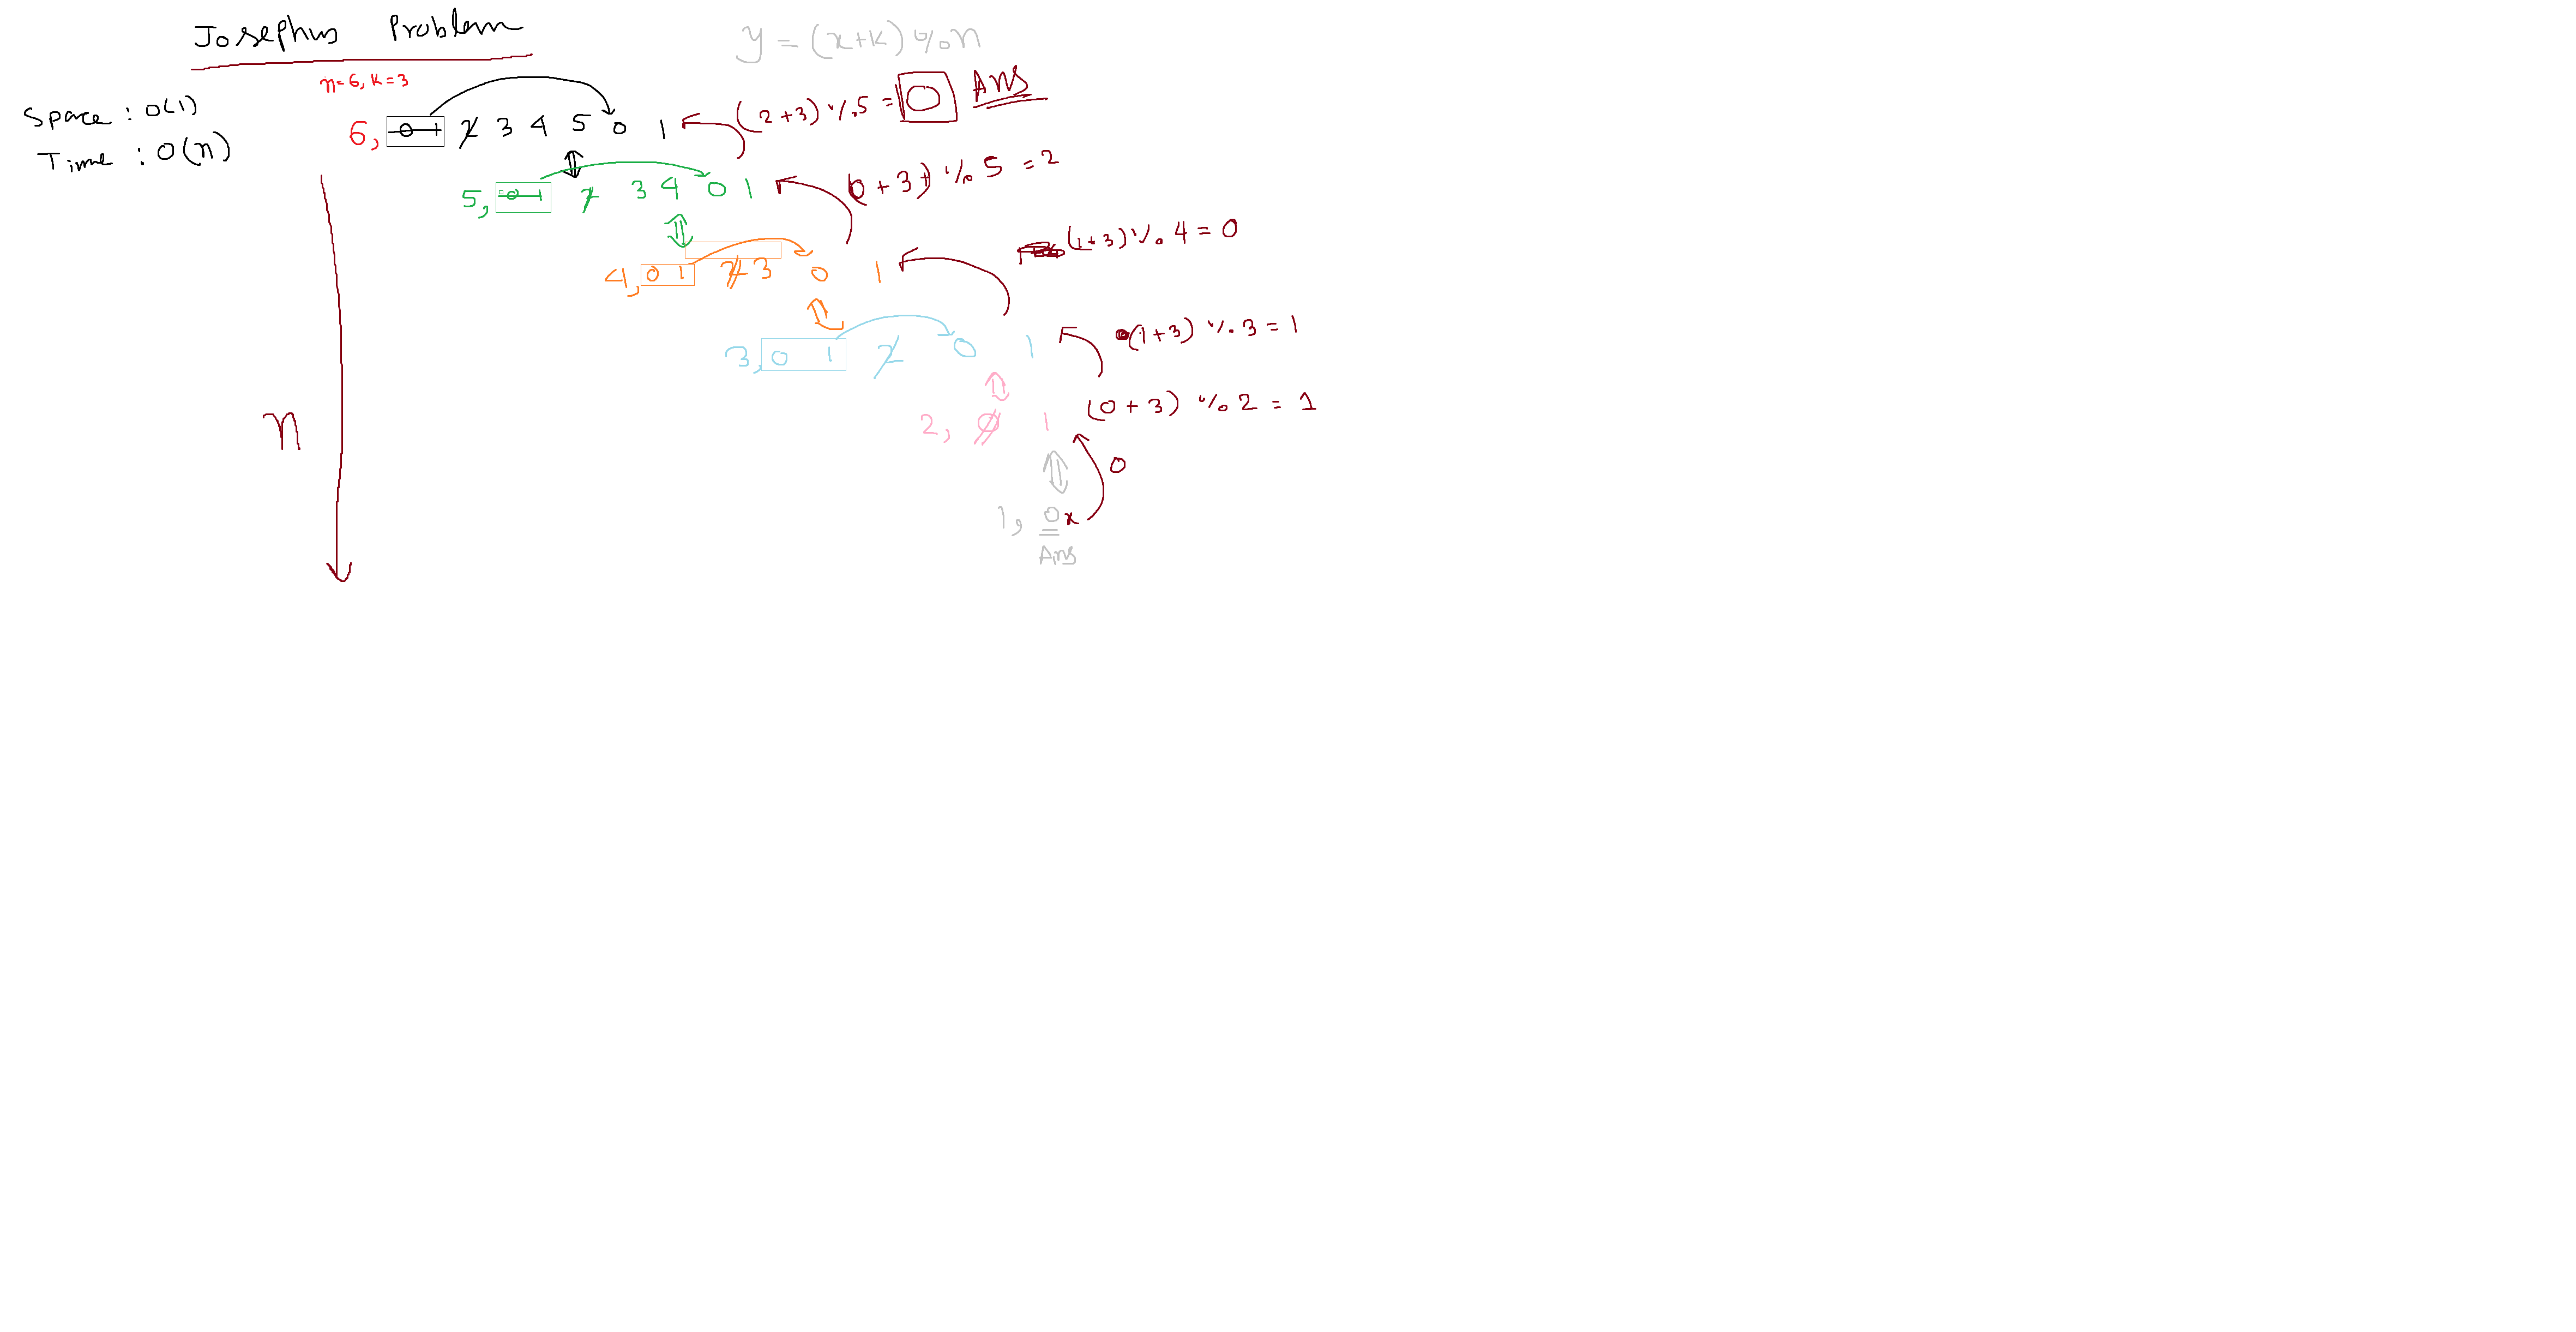 Josephus Problem
y = (x+k) % n
n=6, k=3
Space : O(1)
Time : O(n)
6, 0 1 2 3 4 5 0 1
(2+3) % 5 = 0 Ans
5, 0 1 2 3 4 0 1
(0+3) % 5 = 2
4, 0 1 2 3 0 1
(1+3) % 4 = 0
3, 0 1 2 0 1
(1+3) % 3 = 1
2, 0 1
(0+3) % 2 = 1
n
0
1, 0 x
Ans